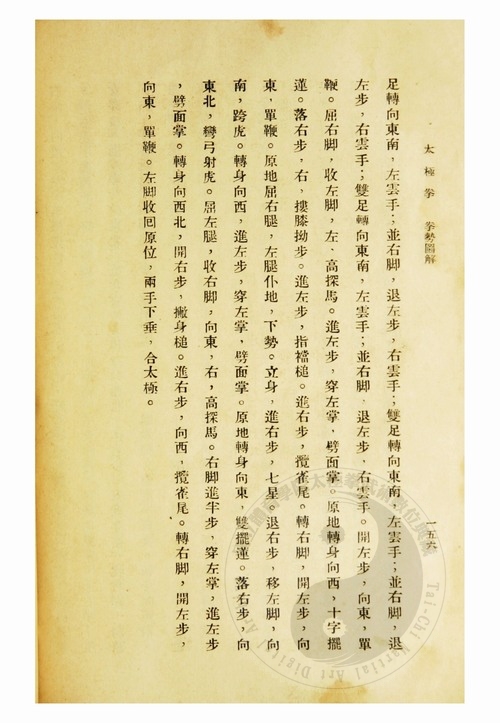 太極拳　拳勢圖解
一五六
足轉向東南，左雲手；並右脚，退左步，右雲手；雙足轉向東南，左雲手；並右脚，退
左步，右雲手；雙足轉向東南，左雲手；並右脚，退左步，右雲手。開左步，向東，單
鞭。屈右脚，收左脚，左，高探馬。進左步，穿左掌，劈面掌。原地轉身向西，十字擺
蓮。落右步，右，摟膝拗步。進左步，指襠槌。進右步，攬雀尾。轉右脚，開左步，向
東，單鞭。原地屈右腿，左腿仆地，下勢。立身，進右步，七星。退右步，移左脚，向
南，跨虎。轉身向西，進左步，穿左掌，劈面掌。原地轉身向東，雙擺蓮。落右步，向
東北，彎弓射虎。屈左腿，收右脚，向東，右，高探馬。右脚進半步，穿左掌，進左步
，劈面掌。轉身向西北，開右步，撇身槌。進右步，向西，攬雀尾。轉右脚，開左步，
向東，單鞭。左脚收回原位，兩手下垂，合太極。
Tai-Chi Martial Art Digital